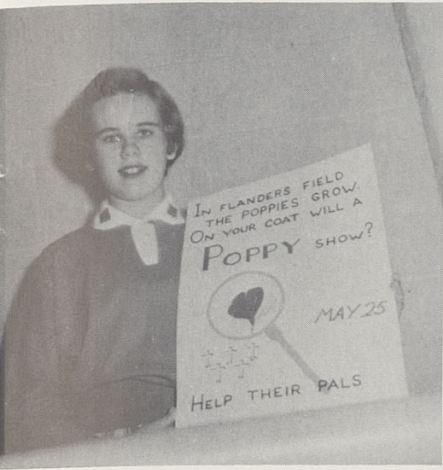 IN FLANDERS FIELD
THE POPPIES GROW.
ON YOUR COAT WILL A
POPPY SHOW?
MAY 25
HELP THEIR PALS